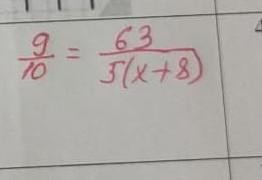 9/10 = 63/5(x+8)